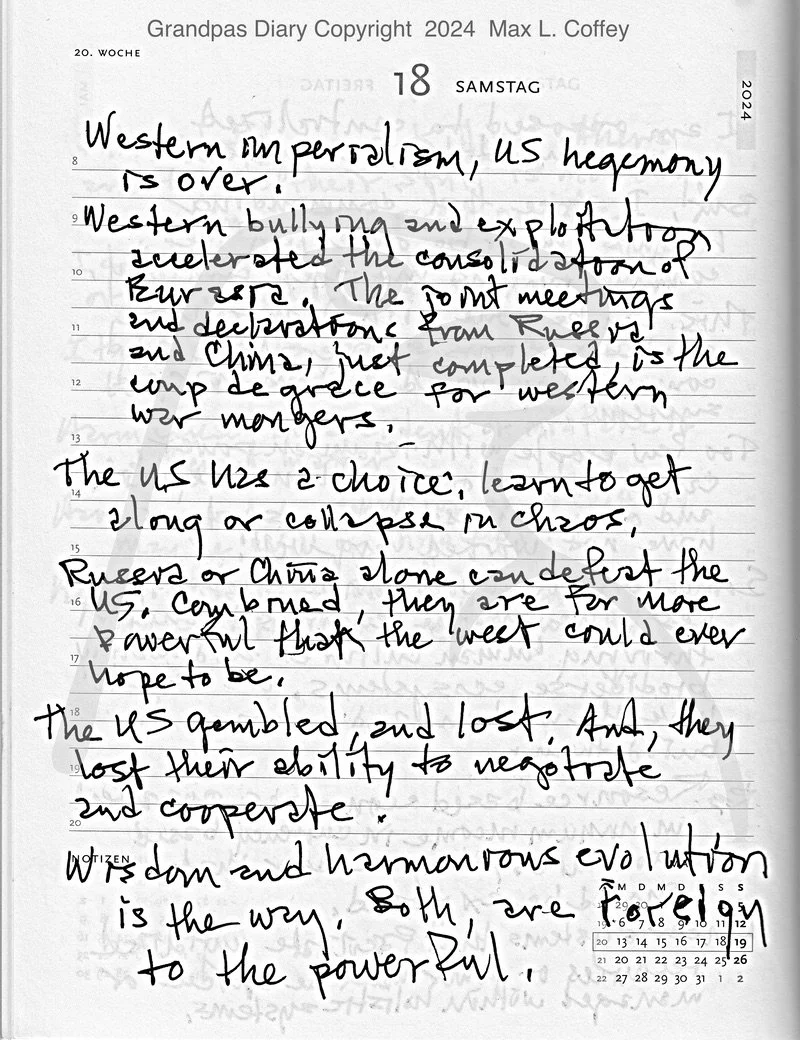 Grandpas Diary Copyright 2024 Max L. Coffey
20. WOCHE
18 SAMSTAG
2024
Western imperialism, US hegemony
8
is over.
9 Western bullying and exploitation
accelerated the consolidation of
10
Eurasia. The joint meetings
11 and declarations from Russia
and China, just completed, is the
12 coup de grace for western
war mongers.
13
The US has a choice; learn to get
14
along or collapse in chaos.
15
Russia or China alone can defeat the
16 US. Combined, they are far more
powerful that the west could ever
17
hope to be.
18
The US gambled, and lost. And, they
19 lost their ability to negotiate
and cooperate.
20
NOTIZEN
Wisdom and harmonious evolution
is the way. Both, are foreign
to the powerful.
M D M D F S S
19 6 7 8 9 10 11 12
20 13 14 15 16 17 18 19
21 20 21 22 23 24 25 26
22 27 28 29 30 31 1 2